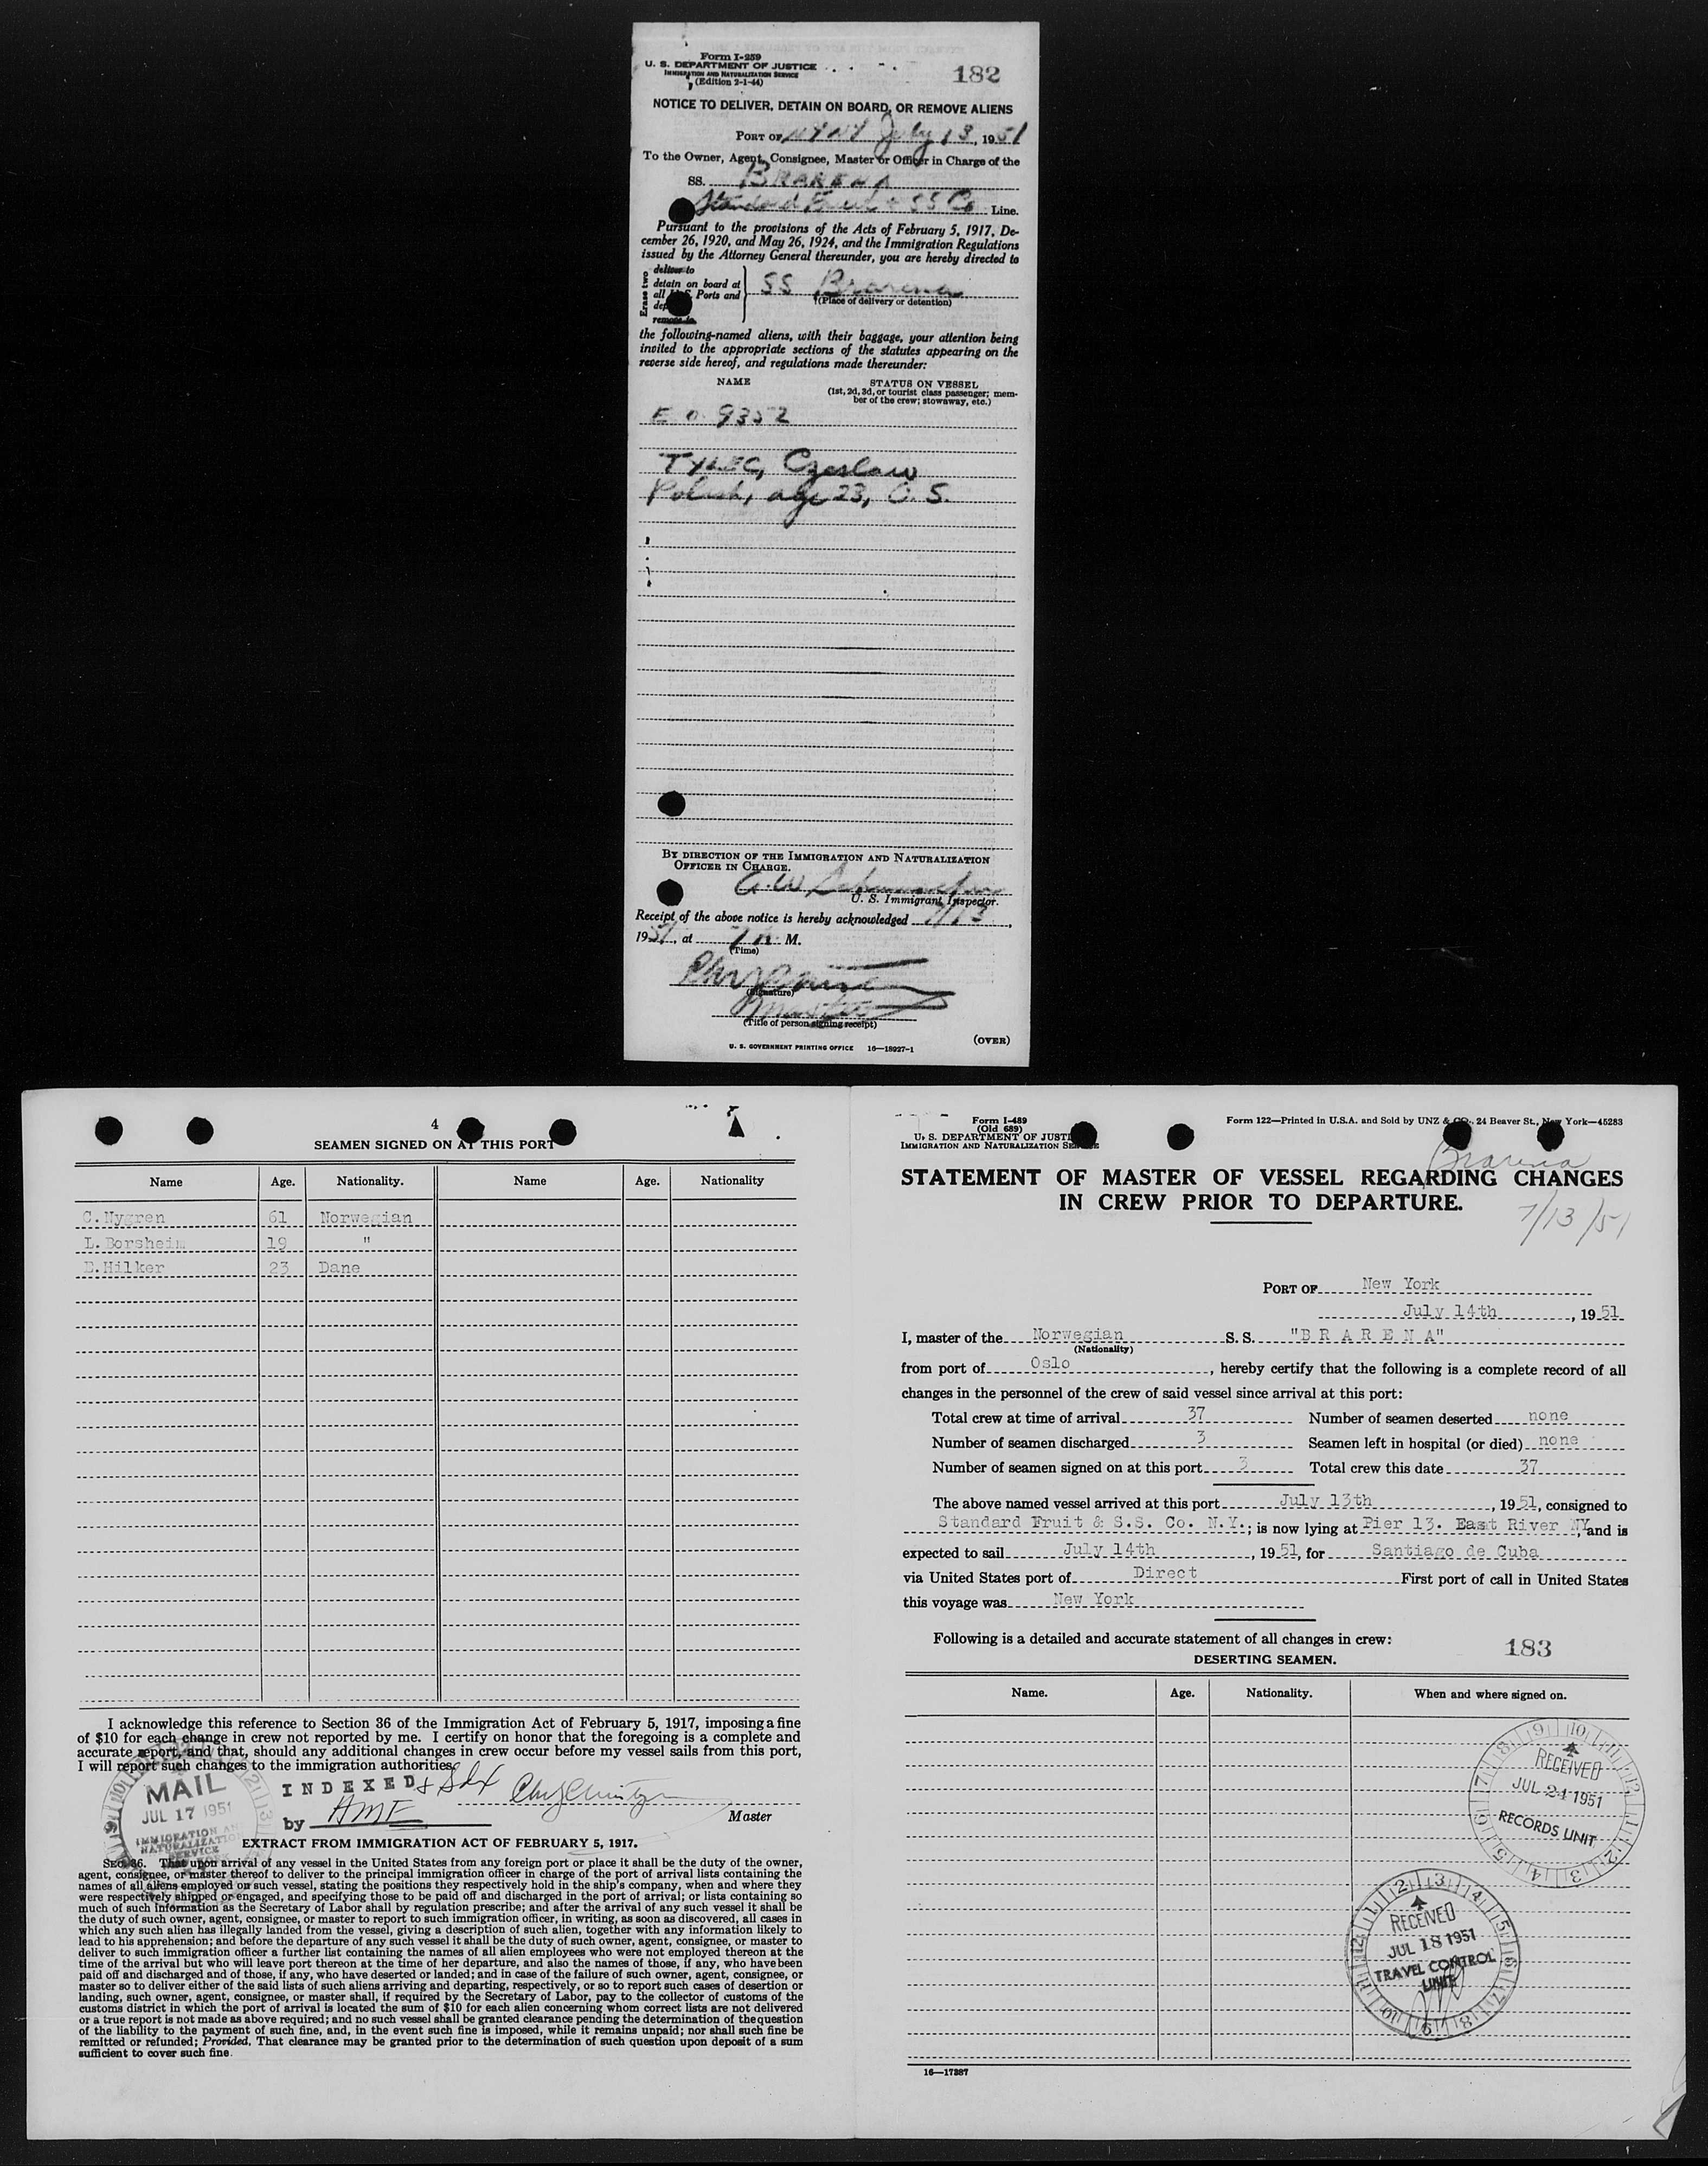 Form I-259
U. S. DEPARTMENT OF JUSTICE
IMMIGRATION AND NATURALIZATION SERVICE
(Edition 2-1-44)
182
NOTICE TO DELIVER, DETAIN ON BOARD, OR REMOVE ALIENS
PORT OF NY NY July 13, 1951
To the Owner, Agent, Consignee, Master or Officer in Charge of the
SS. BRARENA
Standard Fruit & SS Co Line.
Pursuant to the provisions of the Acts of February 5, 1917, De-
cember 26, 1920, and May 26, 1924, and the Immigration Regulations
issued by the Attorney General thereunder, you are hereby directed to
Erase two
deliver to
detain on board at
all U.S. Ports and
remove to
SS Brarena
(Place of delivery or detention)
the following-named aliens, with their baggage, your attention being
invited to the appropriate sections of the statutes appearing on the
reverse side hereof, and regulations made thereunder:
NAME
STATUS ON VESSEL
(1st, 2d, 3d, or tourist class passenger; mem-
ber of the crew; stowaway, etc.)
E O 9352
TYLEC, Czeslaw
Polish, age 23, O. S.
BY DIRECTION OF THE IMMIGRATION AND NATURALIZATION
OFFICER IN CHARGE.
U. S. Immigrant Inspector.
Receipt of the above notice is hereby acknowledged 7/13,
1951, at M.
(Time)
(Signature)
Master
(Title of person signing receipt)
(OVER)
U. S. GOVERNMENT PRINTING OFFICE 16—18927-1
4
SEAMEN SIGNED ON AT THIS PORT
Name Age. Nationality. Name Age. Nationality
C.Nygren 61 Norwegian
L.Borsheim 19 "
E.Hilker 23 Dane
I acknowledge this reference to Section 36 of the Immigration Act of February 5, 1917, imposing a fine
of $10 for each change in crew not reported by me. I certify on honor that the foregoing is a complete and
accurate report, and that, should any additional changes in crew occur before my vessel sails from this port,
I will report such changes to the immigration authorities.
MAIL
JUL 17 1951
IMMIGRATION AND
NATURALIZATION
SERVICE
INDEXED
by AMF
Master
EXTRACT FROM IMMIGRATION ACT OF FEBRUARY 5, 1917.
SEC. 36. That upon arrival of any vessel in the United States from any foreign port or place it shall be the duty of the owner,
agent, consignee, or master thereof to deliver to the principal immigration officer in charge of the port of arrival lists containing the
names of all aliens employed on such vessel, stating the positions they respectively hold in the ship's company, when and where they
were respectively shipped or engaged, and specifying those to be paid off and discharged in the port of arrival; or lists containing so
much of such information as the Secretary of Labor shall by regulation prescribe; and after the arrival of any such vessel it shall be
the duty of such owner, agent, consignee, or master to report to such immigration officer, in writing, as soon as discovered, all cases in
which any such alien has illegally landed from the vessel, giving a description of such alien, together with any information likely to
lead to his apprehension; and before the departure of any such vessel it shall be the duty of such owner, agent, consignee, or master to
deliver to such immigration officer a further list containing the names of all alien employees who were not employed thereon at the
time of the arrival but who will leave port thereon at the time of her departure, and also the names of those, if any, who have been
paid off and discharged and of those, if any, who have deserted or landed; and in case of the failure of such owner, agent, consignee, or
master so to deliver either of the said lists of such aliens arriving and departing, respectively, or so to report such cases of desertion or
landing, such owner, agent, consignee, or master shall, if required by the Secretary of Labor, pay to the collector of customs of the
customs district in which the port of arrival is located the sum of $10 for each alien concerning whom correct lists are not delivered
or a true report is not made as above required; and no such vessel shall be granted clearance pending the determination of the question
of the liability to the payment of such fine, and, in the event such fine is imposed, while it remains unpaid; nor shall such fine be
remitted or refunded; Provided, That clearance may be granted prior to the determination of such question upon deposit of a sum
sufficient to cover such fine.
Form I-489
(Old 689)
U. S. DEPARTMENT OF JUSTICE
IMMIGRATION AND NATURALIZATION SERVICE
Form 122—Printed in U.S.A. and Sold by UNZ & CO., 24 Beaver St., New York—45283
Brarena
STATEMENT OF MASTER OF VESSEL REGARDING CHANGES
IN CREW PRIOR TO DEPARTURE.
7/13/51
PORT OF New York
July 14th, 1951
I, master of the Norwegian S. S. "B R A R E N A"
(Nationality)
from port of Oslo, hereby certify that the following is a complete record of all
changes in the personnel of the crew of said vessel since arrival at this port:
Total crew at time of arrival 37 Number of seamen deserted none
Number of seamen discharged 3 Seamen left in hospital (or died) none
Number of seamen signed on at this port 3 Total crew this date 37
The above named vessel arrived at this port July 13th, 1951, consigned to
Standard Fruit & S.S. Co. N.Y.; is now lying at Pier 13. East River NY, and is
expected to sail July 14th, 1951, for Santiago de Cuba
via United States port of Direct First port of call in United States
this voyage was New York
Following is a detailed and accurate statement of all changes in crew:
183
DESERTING SEAMEN.
Name. Age. Nationality. When and where signed on.
RECEIVED
JUL 24 1951
RECORDS UNIT
RECEIVED
JUL 18 1951
TRAVEL CONTROL
UNIT
16—17387